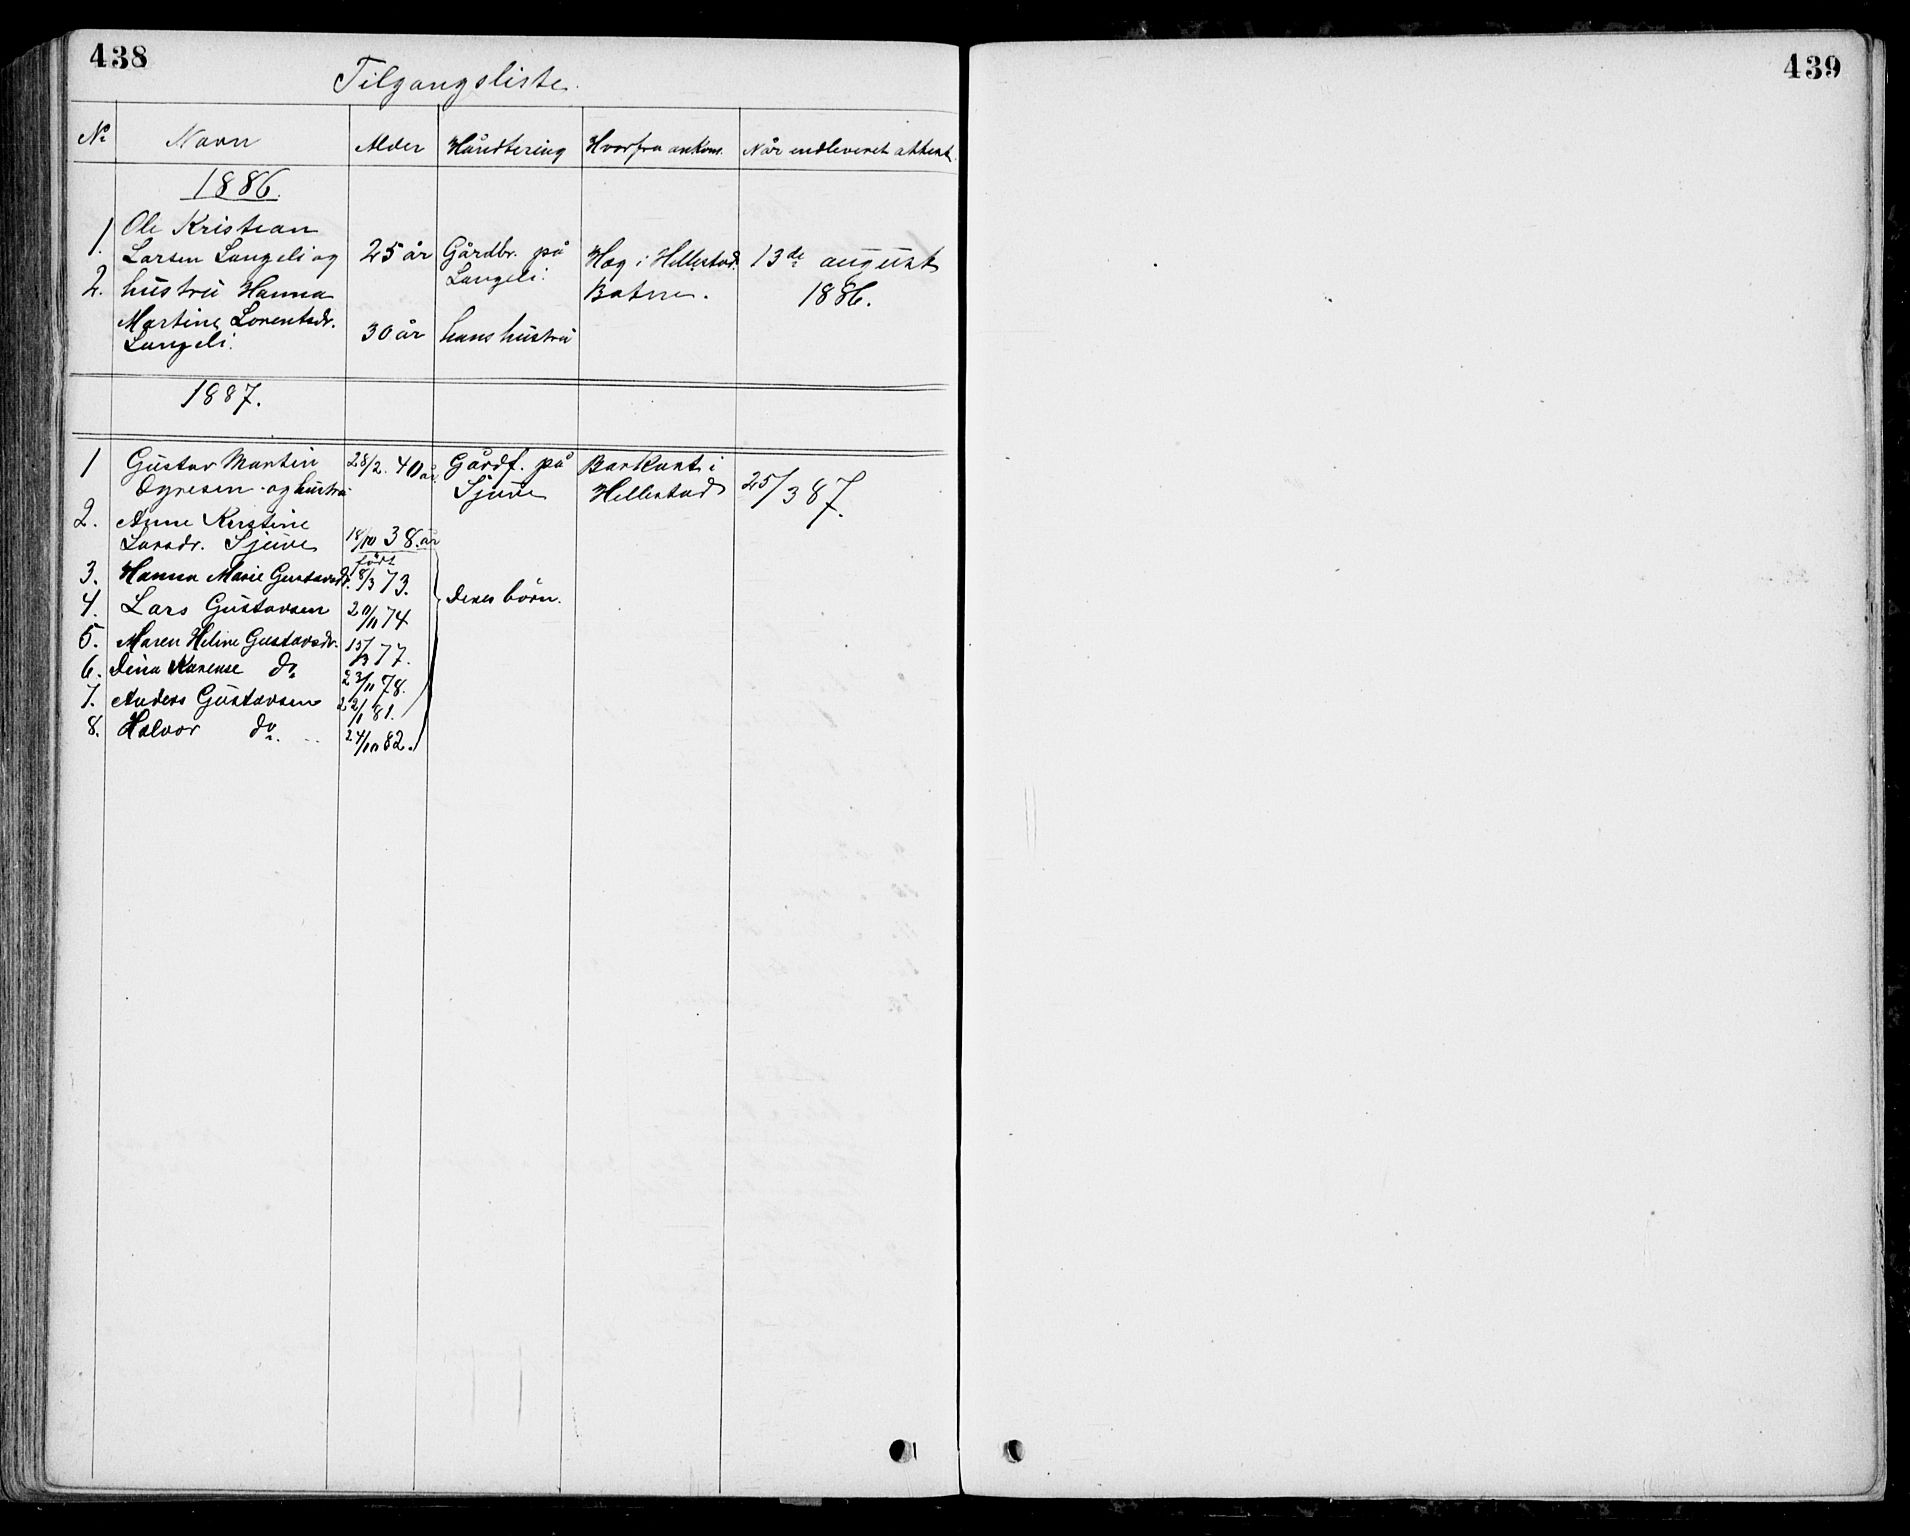 438
439
Tilgangsliste.
No Navn Alder Håndtering Hvorfra ankom. Når indleveret attest.
1886.
1. Ole Kristian
Larsen Langeli og 25 år Gårdbr. på Hag i Hillestad. 13de august
Langeli.
2. hustru Hanna Botne. 1886.
Martine Lorentsdr.
Langeli. 30 år hans hustru
1887.
1 Gustav Martin 28/2. 40 år. Gårdf. på i
og hustru Sjeue Hillestad 25/3 87.
2. Anne Kristine
Larsdr. Sjeue 18/10 38. år
født
3. Hanna Marie Gustavsdr. 8/3 73.
4. Lars Gustavsen 74 deres børn.
5. Maren Heline Gustavsdr. 15/3 77.
6. Dina Karense do 23/11 78.
7. Anders Gustavsen 22/1 81.
8. Halvor do. 24/10 82.